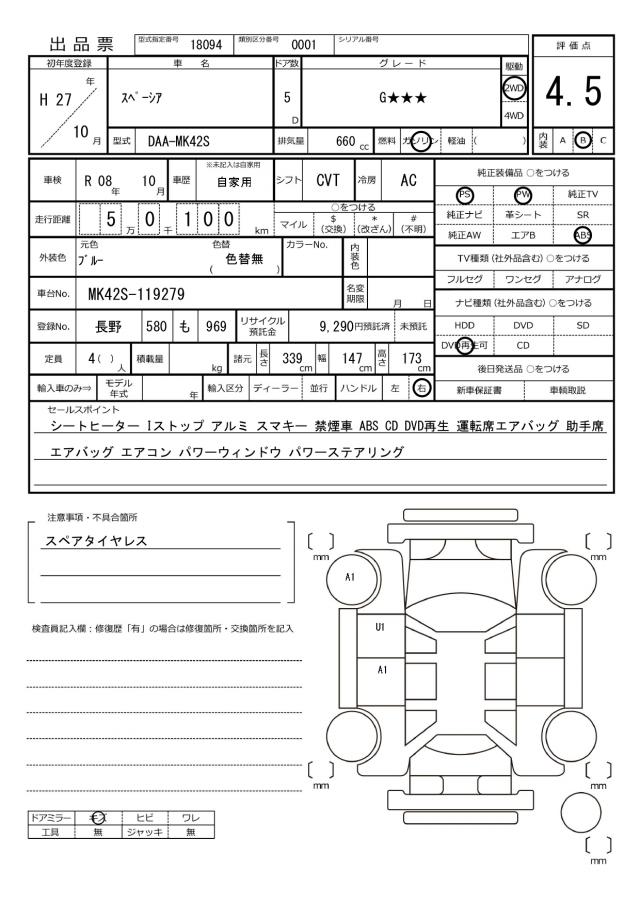 出品票 型式指定番号 18094 類別区分番号 0001 シリアル番号
評価点
初年度登録 車名 ドア数 グレード 駆動
H 27 年 10 月 スペーシア 5 D G★★★ 2WD 4WD
4.5
型式 DAA-MK42S 排気量 660 cc 燃料 ガソリン 軽油 ( )
内装 A B C
※未記入は自家用
車検 R 08 年 10 月 車歴 自家用 シフト CVT 冷房 AC
純正装備品 ○をつける
PS PW 純正TV
走行距離 5 万 0 千 1 0 0 km
○をつける
マイル $ (交換) * (改ざん) # (不明)
純正ナビ 革シート SR
純正AW エアB ABS
外装色 元色 ブルー 色替 ( 色替無 ) カラーNo. 内装色
TV種類 (社外品含む) ○をつける
フルセグ ワンセグ アナログ
車台No. MK42S-119279 名変期限 月 日
ナビ種類 (社外品含む) ○をつける
登録No. 長野 580 も 969 リサイクル預託金 9,290円預託済 未預託
HDD DVD SD
DVD再生可 CD
定員 4 ( ) 人 積載量 kg 諸元 長さ 339 cm 幅 147 cm 高さ 173 cm
後日発送品 ○をつける
輸入車のみ⇒ モデル年式 年 輸入区分 ディーラー 並行 ハンドル 左 右
新車保証書 車輌取説
セールスポイント
シートヒーター Iストップ アルミ スマキー 禁煙車 ABS CD DVD再生 運転席エアバッグ 助手席
エアバッグ エアコン パワーウィンドウ パワーステアリング
注意事項・不具合箇所
スペアタイヤレス
検査員記入欄:修復歴「有」の場合は修復箇所・交換箇所を記入
〔 〕 mm
〔 〕 mm
A1
U1
A1
〔 〕 mm
〔 〕 mm
〔 〕 mm
ドアミラー キズ ヒビ ワレ
工具 無 ジャッキ 無